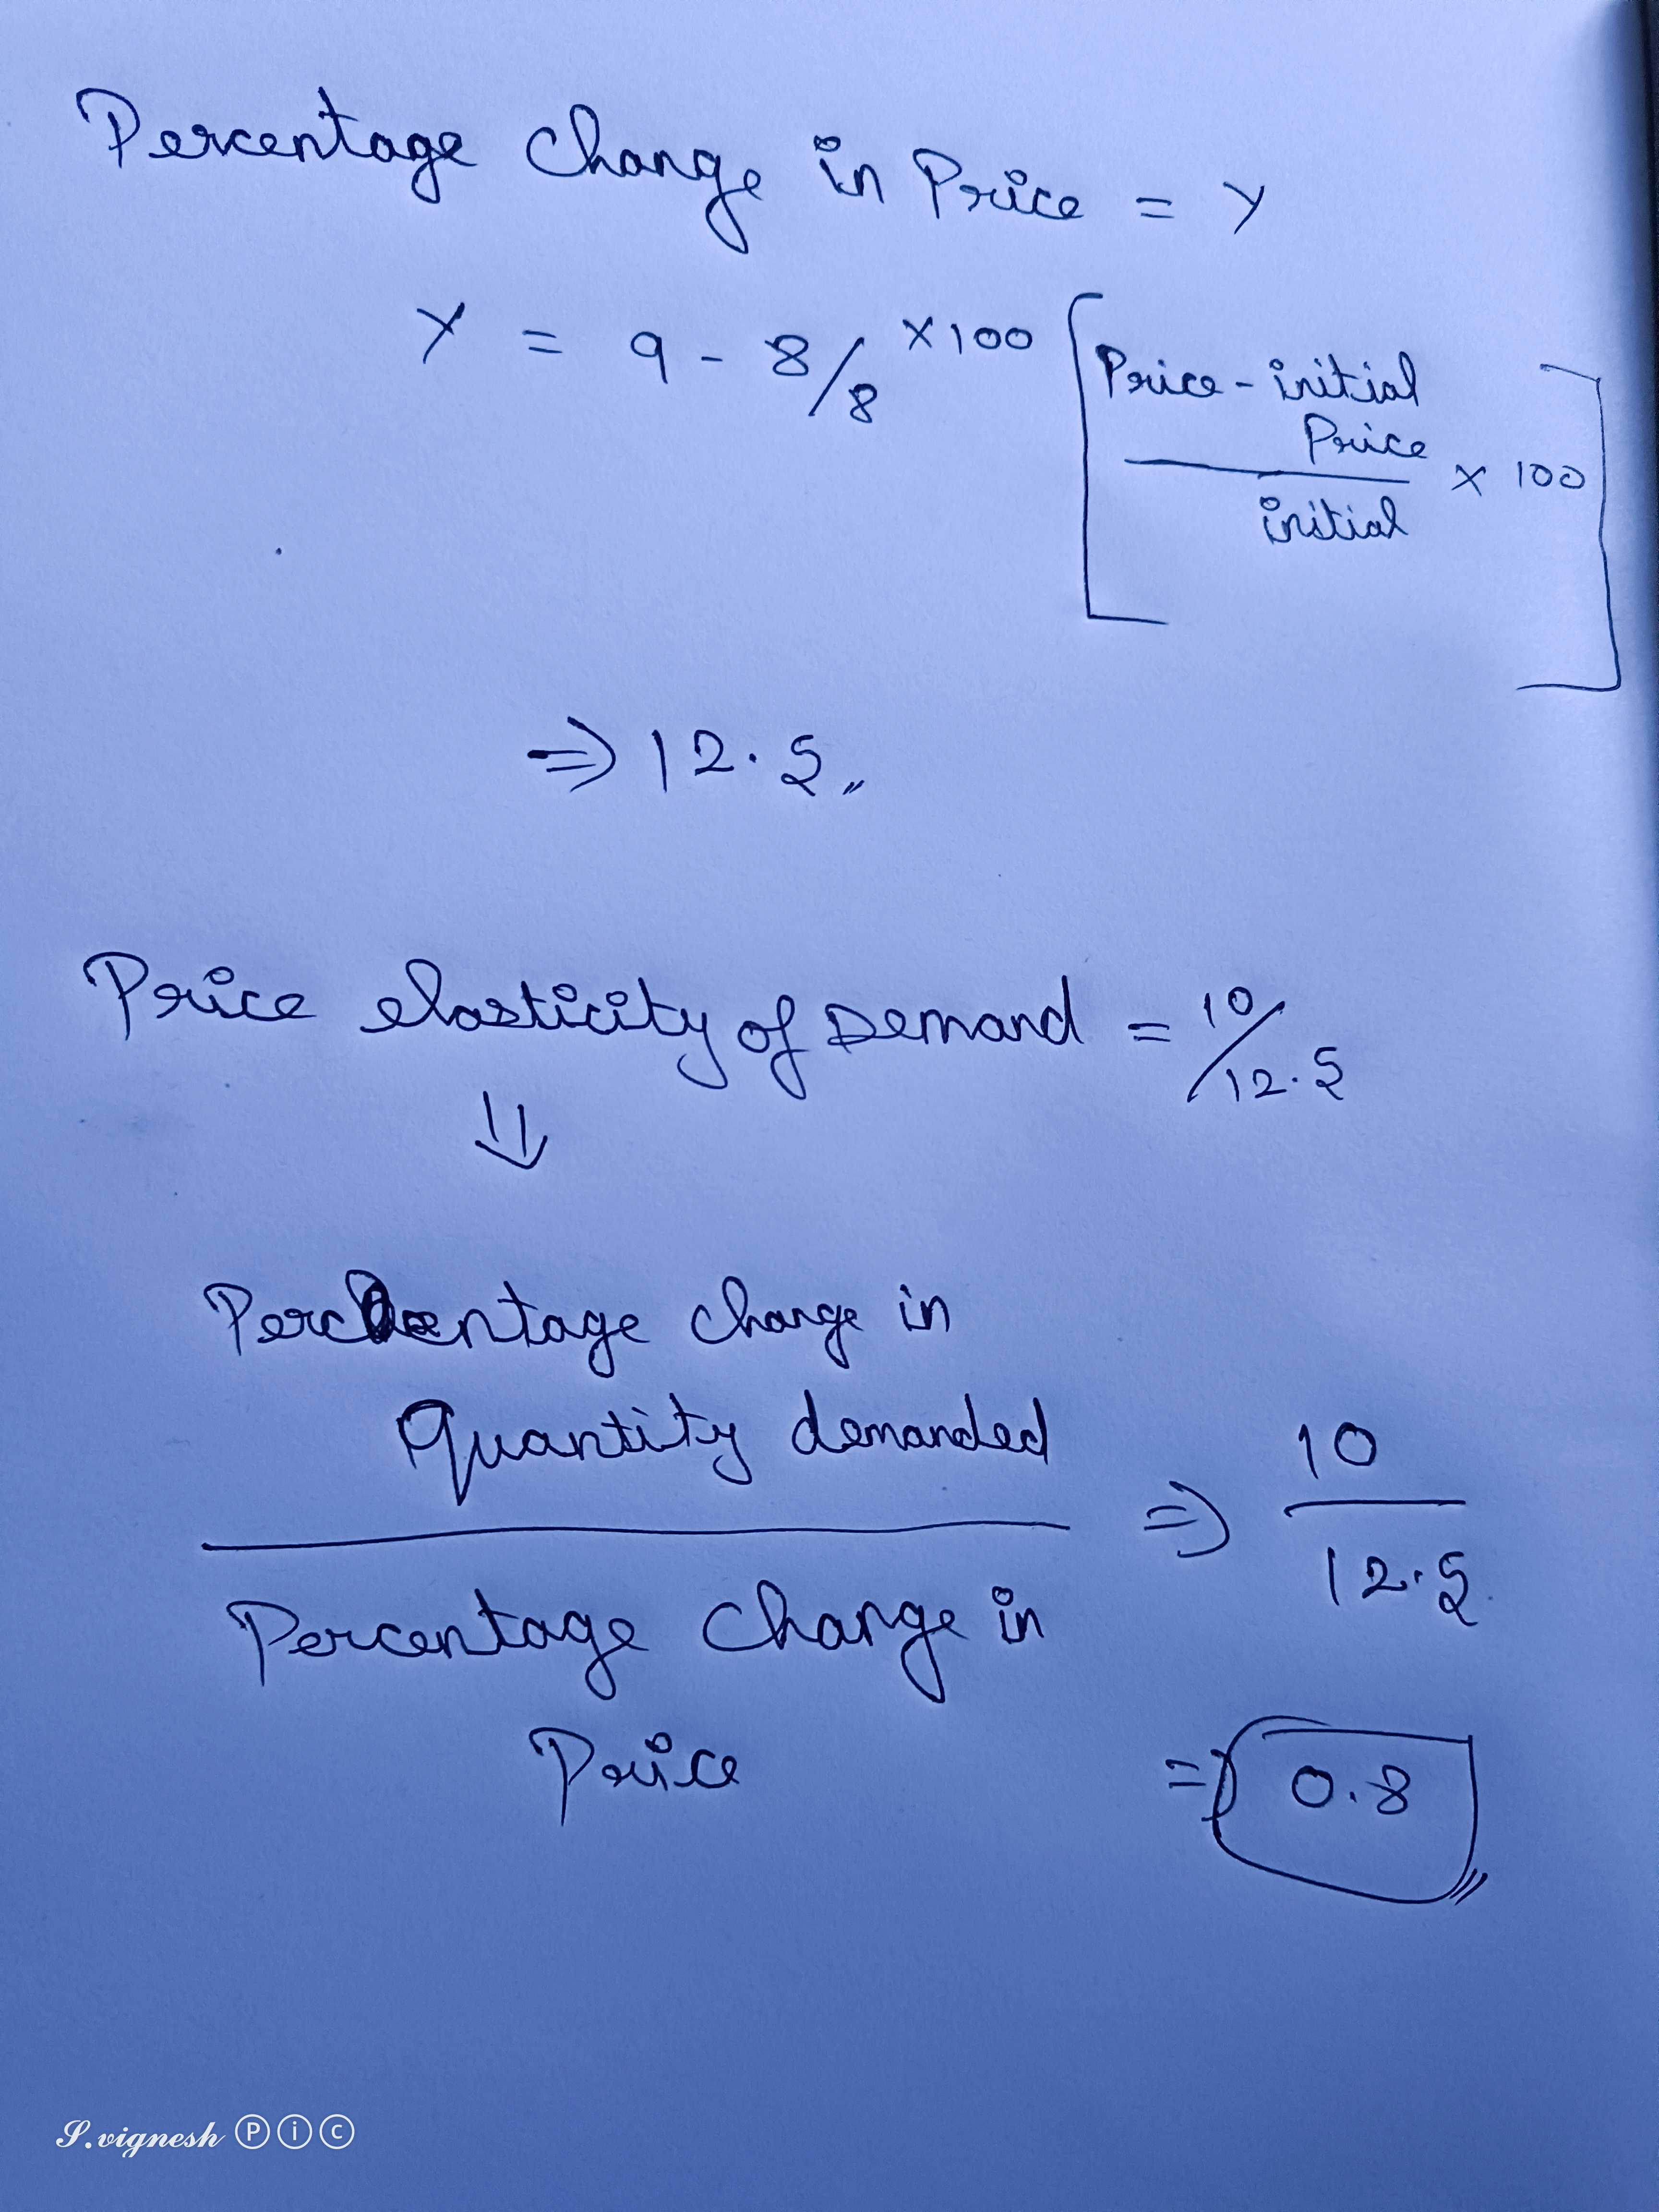 Percentage Change in Price = Y
Y = 9 - 8/8 × 100
[Price - initial
Price
initial
× 100]
⇒ 12.5
Price elasticity of Demand = 10/12.5
⇓
Percentage change in
Quantity demanded
Percentage Change in
Price
⇒ 10
12.5
⇒ 0.8
S.vignesh Ⓟⓘⓒ